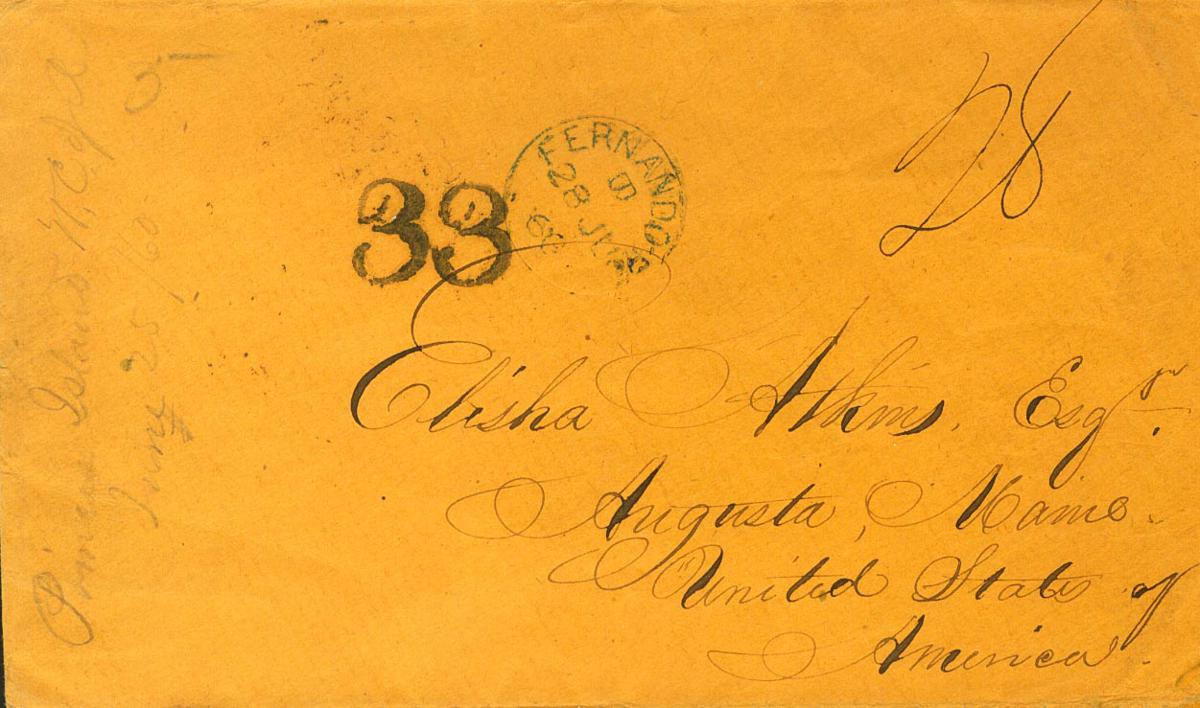 28
33
FERNANDO Po
B
28 JU
60
Elisha Atkins, Esqr.
Augusta, Maine.
United States of
America.
Princes Island W.C. of
June 25/60
5